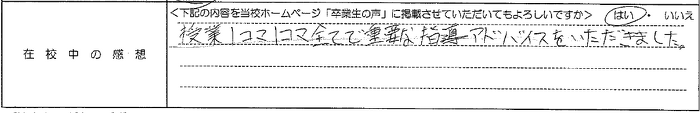 <下記の内容を当校ホームページ「卒業生の声」に掲載させていただいてもよろしいですか> はい ・ いいえ
在校中の感想
授業1コマ1コマ全てで重要な指導アドバイスをいただきました。